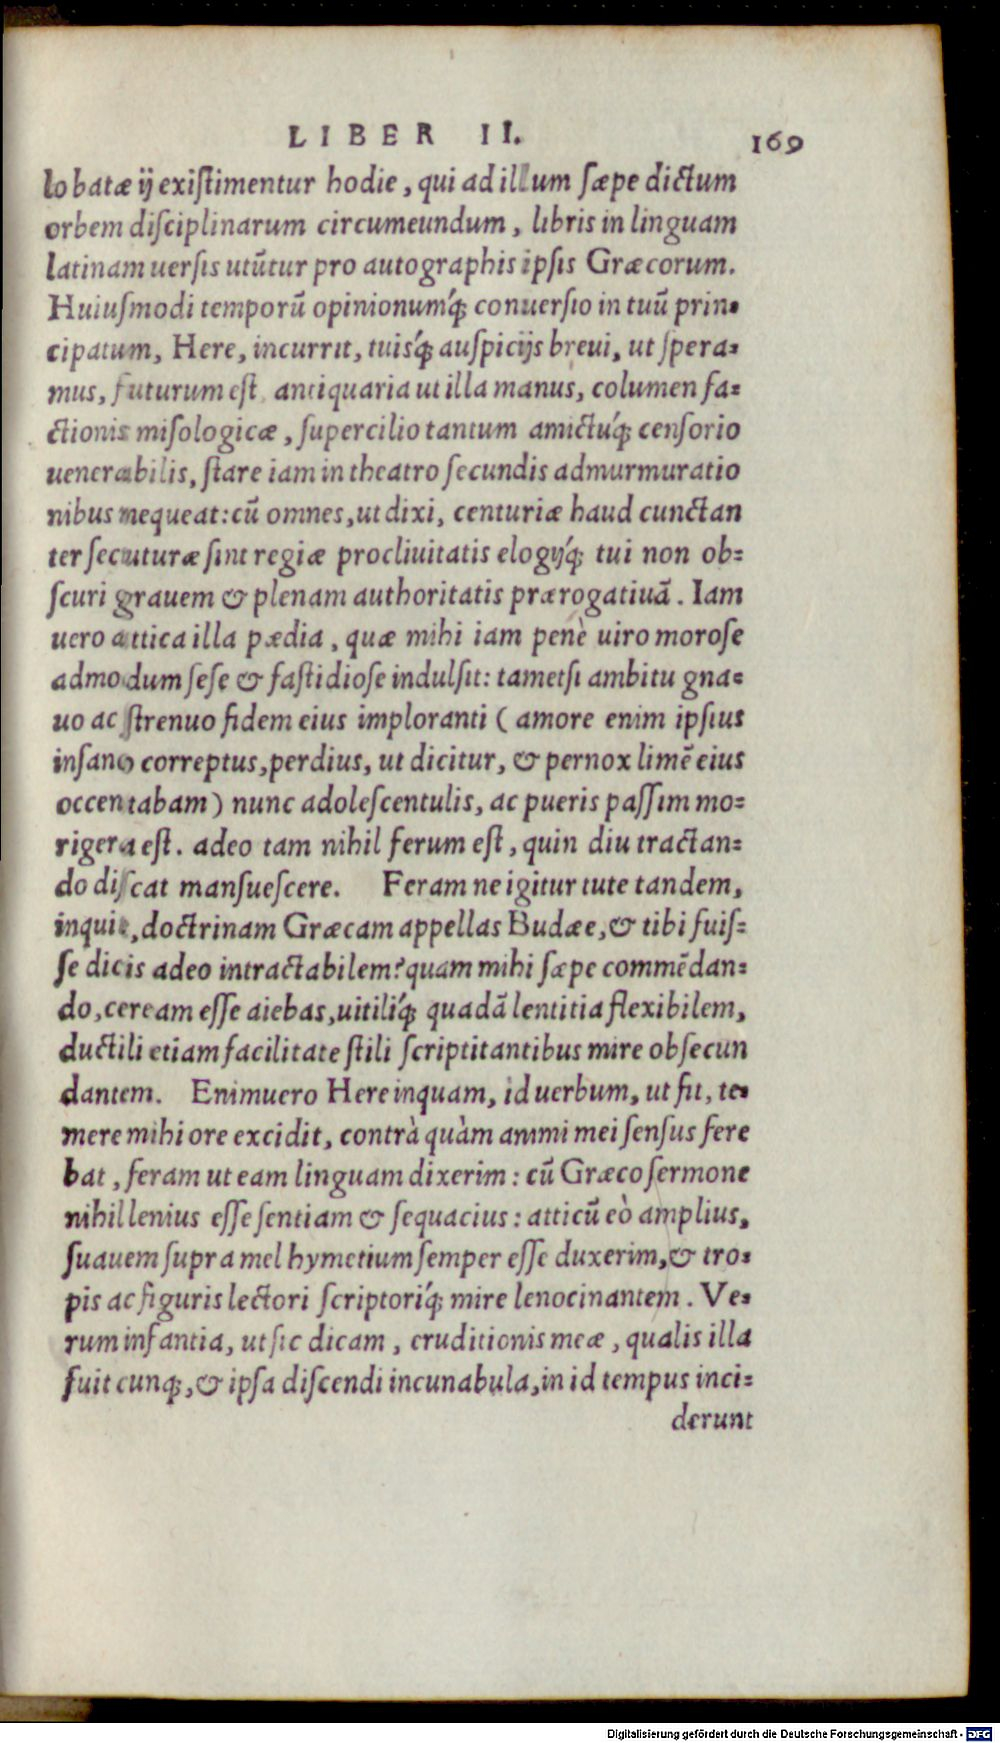 LIBER II. 169
lo batæ ij existimentur hodie, qui ad illum sæpe dictum
orbem disciplinarum circumeundum, libris in linguam
latinam uersis utūtur pro autographis ipsis Græcorum.
Huiusmodi temporū opinionumq́; conuersio in tuū prin-
cipatum, Here, incurrit, tuisq́; auspicijs breui, ut spera-
mus, futurum est antiquaria ut illa manus, columen fa-
ctionis misologicæ, supercilio tantum amictúq; censorio
uenerabilis, stare iam in theatro secundis admurmuratio
nibus nequeat: cū omnes, ut dixi, centuriæ haud cunctan
ter secuturæ sint regiæ procliuitatis elogijq́; tui non ob-
scuri grauem & plenam authoritatis prærogatiuā. Iam
uero attica illa pædia, quæ mihi iam penè uiro morose
admodum sese & fastidiose indulsit: tametsi ambitu gna-
uo ac strenuo fidem eius imploranti (amore enim ipsius
insano correptus, perdius, ut dicitur, & pernox limē eius
occentabam) nunc adolescentulis, ac pueris passim mo-
rigera est. adeo tam nihil ferum est, quin diu tractan-
do discat mansuescere. Feram ne igitur tute tandem,
inquit, doctrinam Græcam appellas Budæe, & tibi fuis-
se dicis adeo intractabilem? quam mihi sæpe commēdan-
do, ceream esse aiebas, uitiliq́; quadā lentitia flexibilem,
ductili etiam facilitate stili scriptitantibus mire obsecun
dantem. Enimuero Here inquam, id uerbum, ut fit, te-
mere mihi ore excidit, contrà quàm animi mei sensus fere
bat, feram ut eam linguam dixerim: cū Græco sermone
nihil lenius esse sentiam & sequacius: atticū eò amplius,
suauem supra mel hymetium semper esse duxerim, & tro-
pis ac figuris lectori scriptoriq́; mire lenocinantem. Ve-
rum infantia, ut sic dicam, eruditionis meæ, qualis illa
fuit cunq;, & ipsa discendi incunabula, in id tempus inci-
derunt
Digitalisierung gefördert durch die Deutsche Forschungsgemeinschaft - DFG